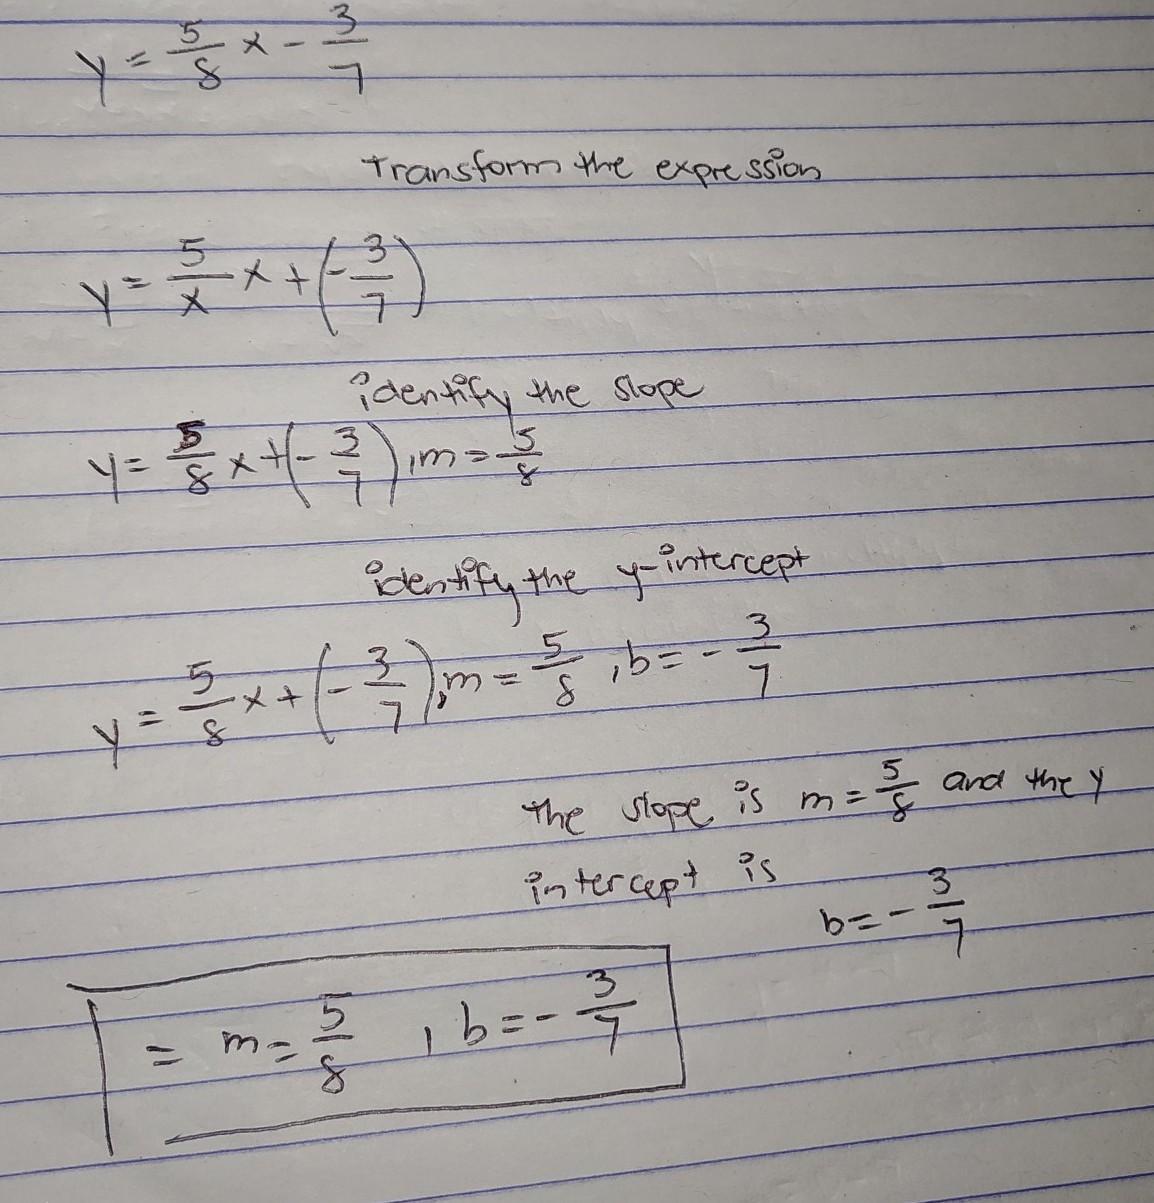 y = 5/8 x - 3/7
Transform the expression
y = 5/x x + (- 3/7)
identify the slope
y = 5/8 x + (- 3/7) , m = 5/8
identify the y-intercept
y = 5/8 x + (- 3/7) , m = 5/8 , b = - 3/7
the slope is m = 5/8 and the y
intercept is
b = - 3/7
= m = 5/8 , b = - 3/7